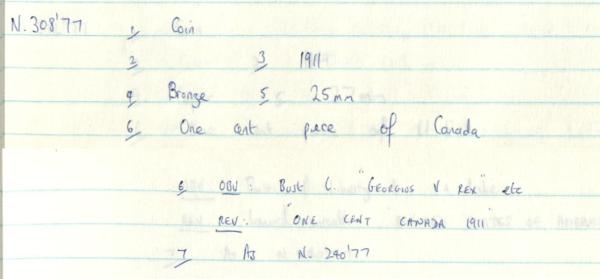 N.308'77 1 Coin
2 3 1911
4 Bronze 5 25mm
6 One cent piece of Canada
6 OBV: Bust L. "GEORGIOS V REX" etc
REV: "ONE CENT CANADA 1911"
7 As N. 240'77